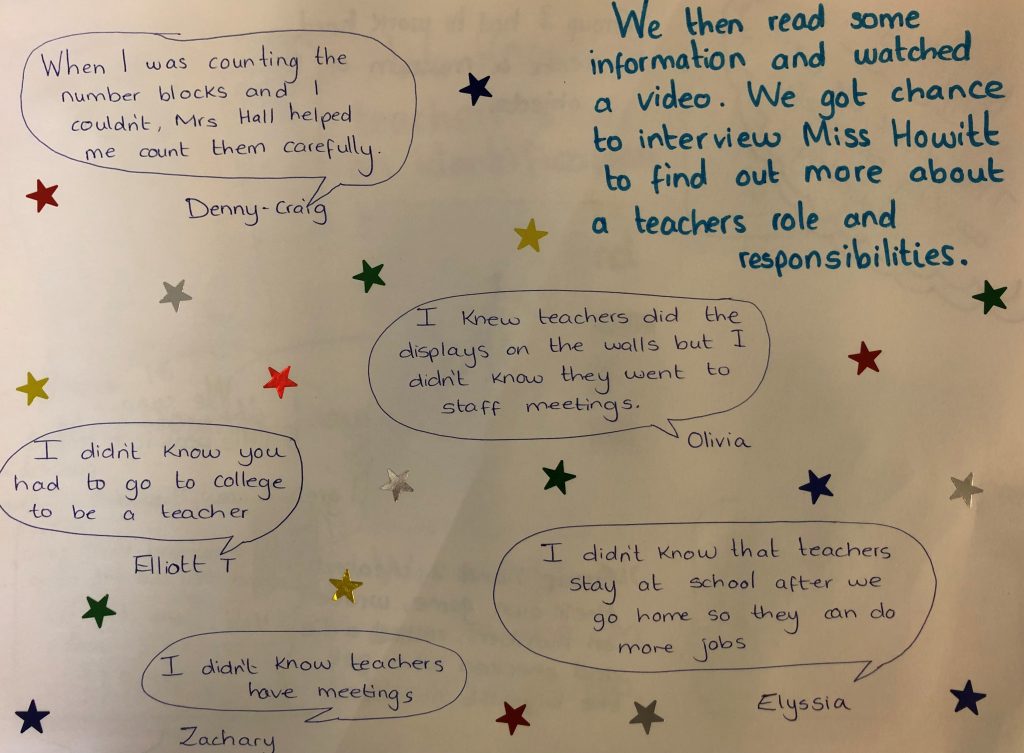 We then read some
information and watched
a video. We got chance
to interview Miss Howitt
to find out more about
a teachers role and
responsibilities.
When I was counting the
number blocks and I
couldn't, Mrs Hall helped
me count them carefully.
Denny-Craig
I knew teachers did the
displays on the walls but I
didn't know they went to
staff meetings.
Olivia
I didn't know you
had to go to college
to be a teacher
Elliott T
I didn't know that teachers
stay at school after we
go home so they can do
more jobs
Elyssia
I didn't know teachers
have meetings
Zachary